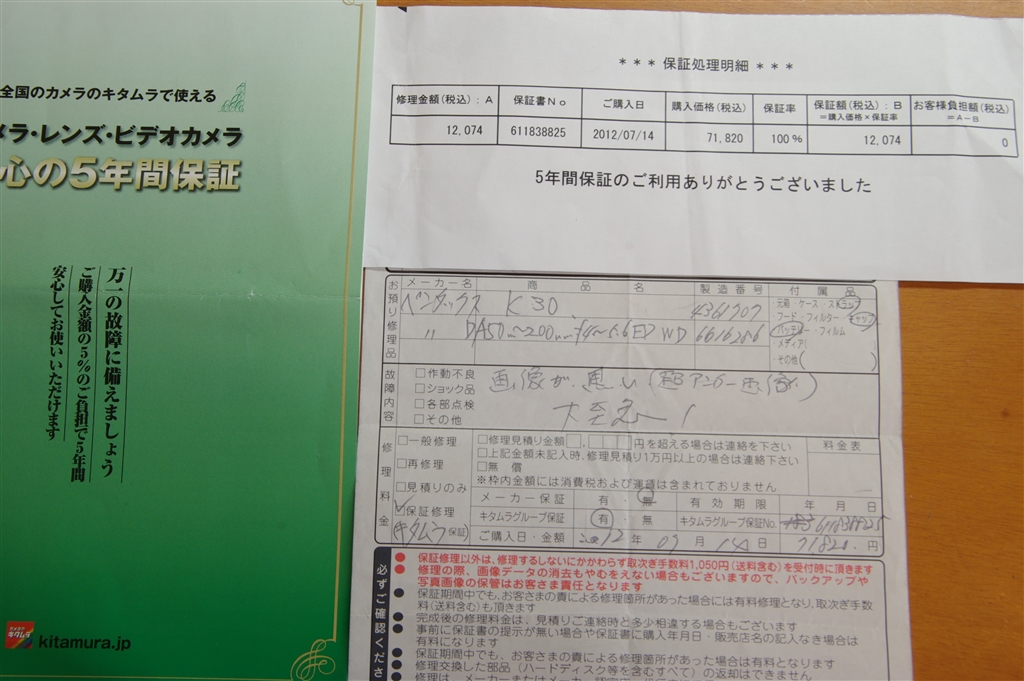 全国のカメラのキタムラで使える
メラ・レンズ・ビデオカメラ
心の5年間保証
万一の故障に備えましょう
ご購入金額の5%のご負担で5年間
安心してお使いいただけます
カメラの
キタムラ
kitamura.jp
*** 保証処理明細 ***
修理金額(税込):A 保証書No ご購入日 購入価格(税込) 保証率 保証額(税込):B お客様負担額(税込)
=購入価格×保証率 =A−B
12,074 611838825 2012/07/14 71,820 100% 12,074 0
5年間保証のご利用ありがとうございました
お預り修理品
メーカー名 商品名 製造番号 付属品
ペンタックス K30 4361707
〃 DA50〜200mm f4〜5.6ED WD 6616206
元箱・ケース・ストラップ
フード・フィルター・キャップ
バッテリー・フィルム
・メディア(
・その他( )
故障内容
□作動不良
□ショック品
□各部点検
□その他
画像が悪い
大至急
修理料金
□一般修理
□再修理
□見積りのみ
□保証修理
(キタムラ保証)
□修理見積り金額□,□□□円を超える場合は連絡を下さい
□上記金額未記入時、修理見積り1万円以上の場合は連絡下さい
□無 償
※枠内金額には消費税および運賃は含まれておりません
料金表
メーカー保証 有・無 有効期限 年 月 日
キタムラグループ保証 有・無 キタムラグループ保証No. 611838825
ご購入日・金額 2012年 07月 14日 71820円
必ずご確認くださ
● 保証修理以外は、修理するしないにかかわらず取次ぎ手数料1,050円(送料含む)を受付時に頂きます
● 修理の際、画像データの消去もやむをえない場合もございますので、バックアップや
写真画像の保管はお客さま責任となります
● 保証期間中でも、お客さまの責による修理箇所があった場合には有料修理となり、取次ぎ手数
料(送料含む)も頂きます
● 完成後の修理料金は、見積りご連絡時と多少相違する場合もございます
● 事前に保証書の提示が無い場合や保証書に購入年月日・販売店名の記入なき場合は
有料になります
● 保証期間中でも、お客さまの責による修理箇所があった場合は有料となります
● 修理交換した部品(ハードディスク等を含むすべて)の返却はできません
● 修理は、メーカーまたはメーカー